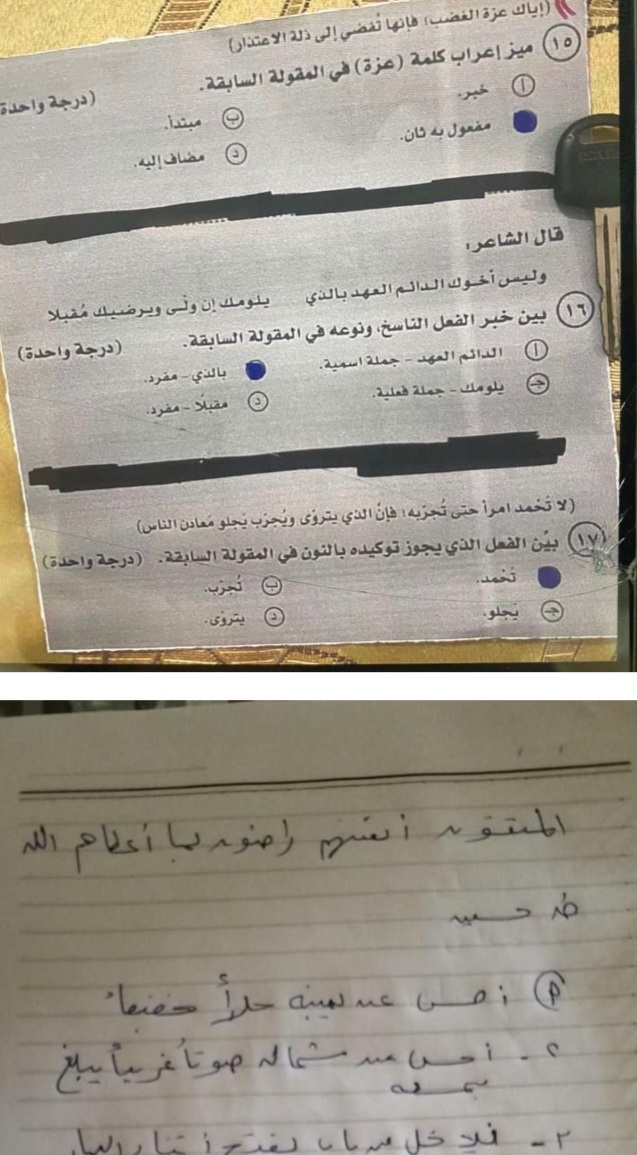 (إياك عزة الغضب؛ فإنها تُفضي إلى ذلة الاعتذار)
١٥ ميز إعراب كلمة (عزة) في المقولة السابقة. (درجة واحدة
أ خبر.
ب مبتدأ.
مفعول به ثان.
د مضاف إليه.
قال الشاعر:
وليس أخوك الدائم العهد بالذي يلومك إن ولّى ويرضيك مُقبلا
١٦ بين خبر الفعل الناسخ، ونوعه في المقولة السابقة. (درجة واحدة)
أ الدائم العهد - جملة اسمية.
بالذي - مفرد.
جـ يلومك - جملة فعلية.
د مقبلًا - مفرد.
(لا تَحْمد امرأ حتى تُجرّبه؛ فإنّ الذي يتروّى ويُجرّب يَجلو مَعادن الناس)
١٧ بيّن الفعل الذي يجوز توكيده بالنون في المقولة السابقة. (درجة واحدة)
تَحْمد.
ب تُجرّب.
جـ يَجلو.
د يتروّى.
أنفسهم راضون بما أعطاهم الله
طه حسين
أحس عن يمينه
٢ - أحس من شماله صوتاً غريباً يبلغ
سمعه